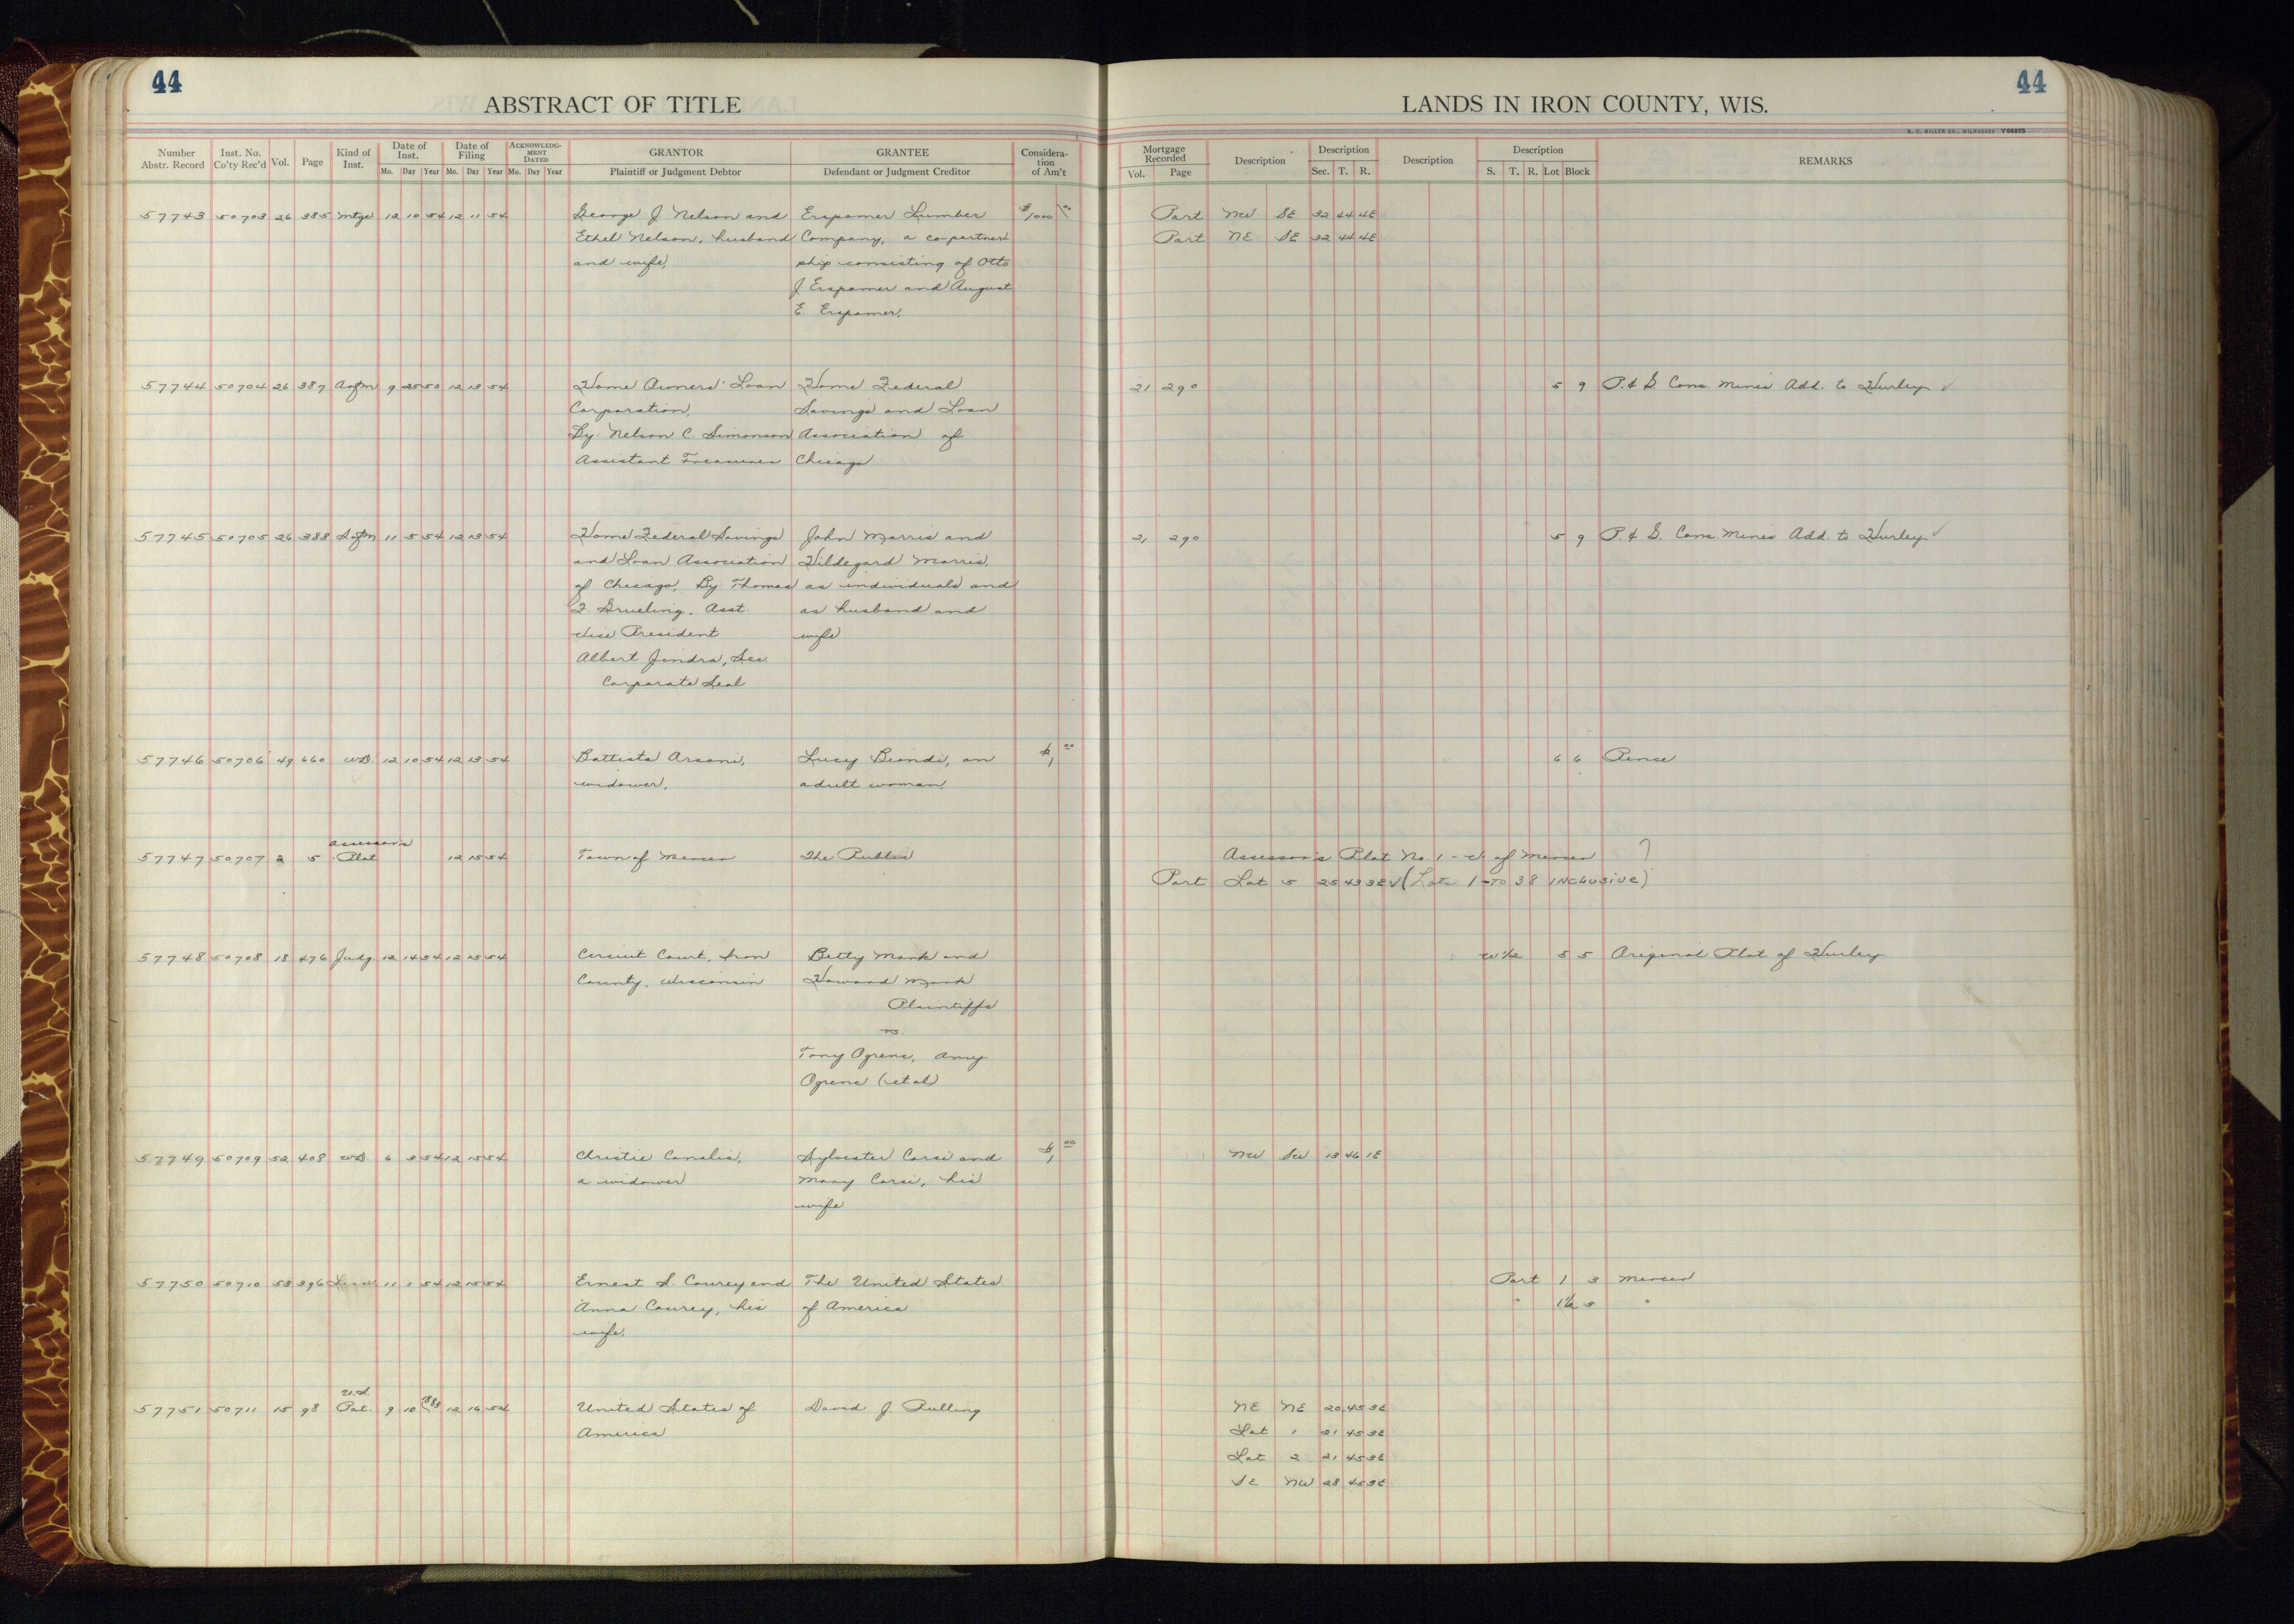 44
44
ABSTRACT OF TITLE
LANDS IN IRON COUNTY, WIS.
H. C. MILLER CO., MILWAUKEE Y66855
Number Abstr. Record
Inst. No. Co'ty Rec'd
Vol.
Page
Kind of Inst.
Date of Inst.
Mo. Day Year
Date of Filing
Mo. Day Year
ACKNOWLEDGMENT DATED
Mo. Day Year
GRANTOR
Plaintiff or Judgment Debtor
GRANTEE
Defendant or Judgment Creditor
Consideration of Am't
Mortgage Recorded
Vol. Page
Description
Description
Sec. T. R.
Description
Description
S. T. R. Lot Block
REMARKS
57743 50703 26 385 Mtge 12 10 54 12 11 54 George J Nelson and Erspamer Lumber $1000 00 Part NW SE 32 44 4E
Ethel Nelson, husband Company, a co-partner Part NE SE 32 44 4E
and wife, ship consisting of Otto
J Erspamer and August
E. Erspamer,
57744 50704 26 387 Asgm 9 25 50 12 13 54 Home Owners' Loan Home Federal 21 290 5 9 P. & G. Cons. Mines Add. to Hurley ✓
Corporation, Savings and Loan
By: Nelson C. Simonson Association of
Assistant Treasurer Chicago
57745 50705 26 388 Asgm 11 5 54 12 13 54 Home Federal Savings John Morris and 21 290 5 9 P. & G. Cons. Mines Add. to Hurley ✓
and Loan Association Hildegard Morris,
of Chicago, By: Thomas as individuals and
F. Grueling, Asst. as husband and
Vice President wife
Albert Jindra, Sec.
Corporate Seal
57746 50706 49 660 WD. 12 10 54 12 13 54 Battista Arsoni, Lucy Biondi, an $1 00 6 6 Pence
widower, adult woman,
Assessor's
57747 50707 2 5 Plat 12 15 54 Town of Mercer The Public Assessor's Plat No. 1 - T. of Mercer ?
Part Lot 5 25 43 3E ✓ (Lots 1-TO 38 INCLUSIVE)
57748 50708 18 476 Judg. 12 14 54 12 15 54 Circuit Court, Iron Betty Mark and W½ 5 5 Original Plat of Hurley
County, Wisconsin Howard Mark
Plaintiffs
vs.
Tony Ogrenc, Amy
Ogrenc (et al)
57749 50709 52 408 WD 6 3 54 12 15 54 Christie Canalia, Sylvester Corsi and $1 00 NW SW 13 46 1E
a widower Mary Corsi, his
wife
57750 50710 53 396 Lease 11 1 54 12 15 54 Ernest S. Courey and The United States Part 1 3 Mercer
Anna Courey, his of America " 1½ 3 "
wife,
U.S.
57751 50711 15 98 Pat. 9 10 1883 12 16 54 United States of David J. Pulling NE NE 20 45 3E
America Lot 1 21 45 3E
Lot 2 21 45 3E
SE NW 28 45 3E